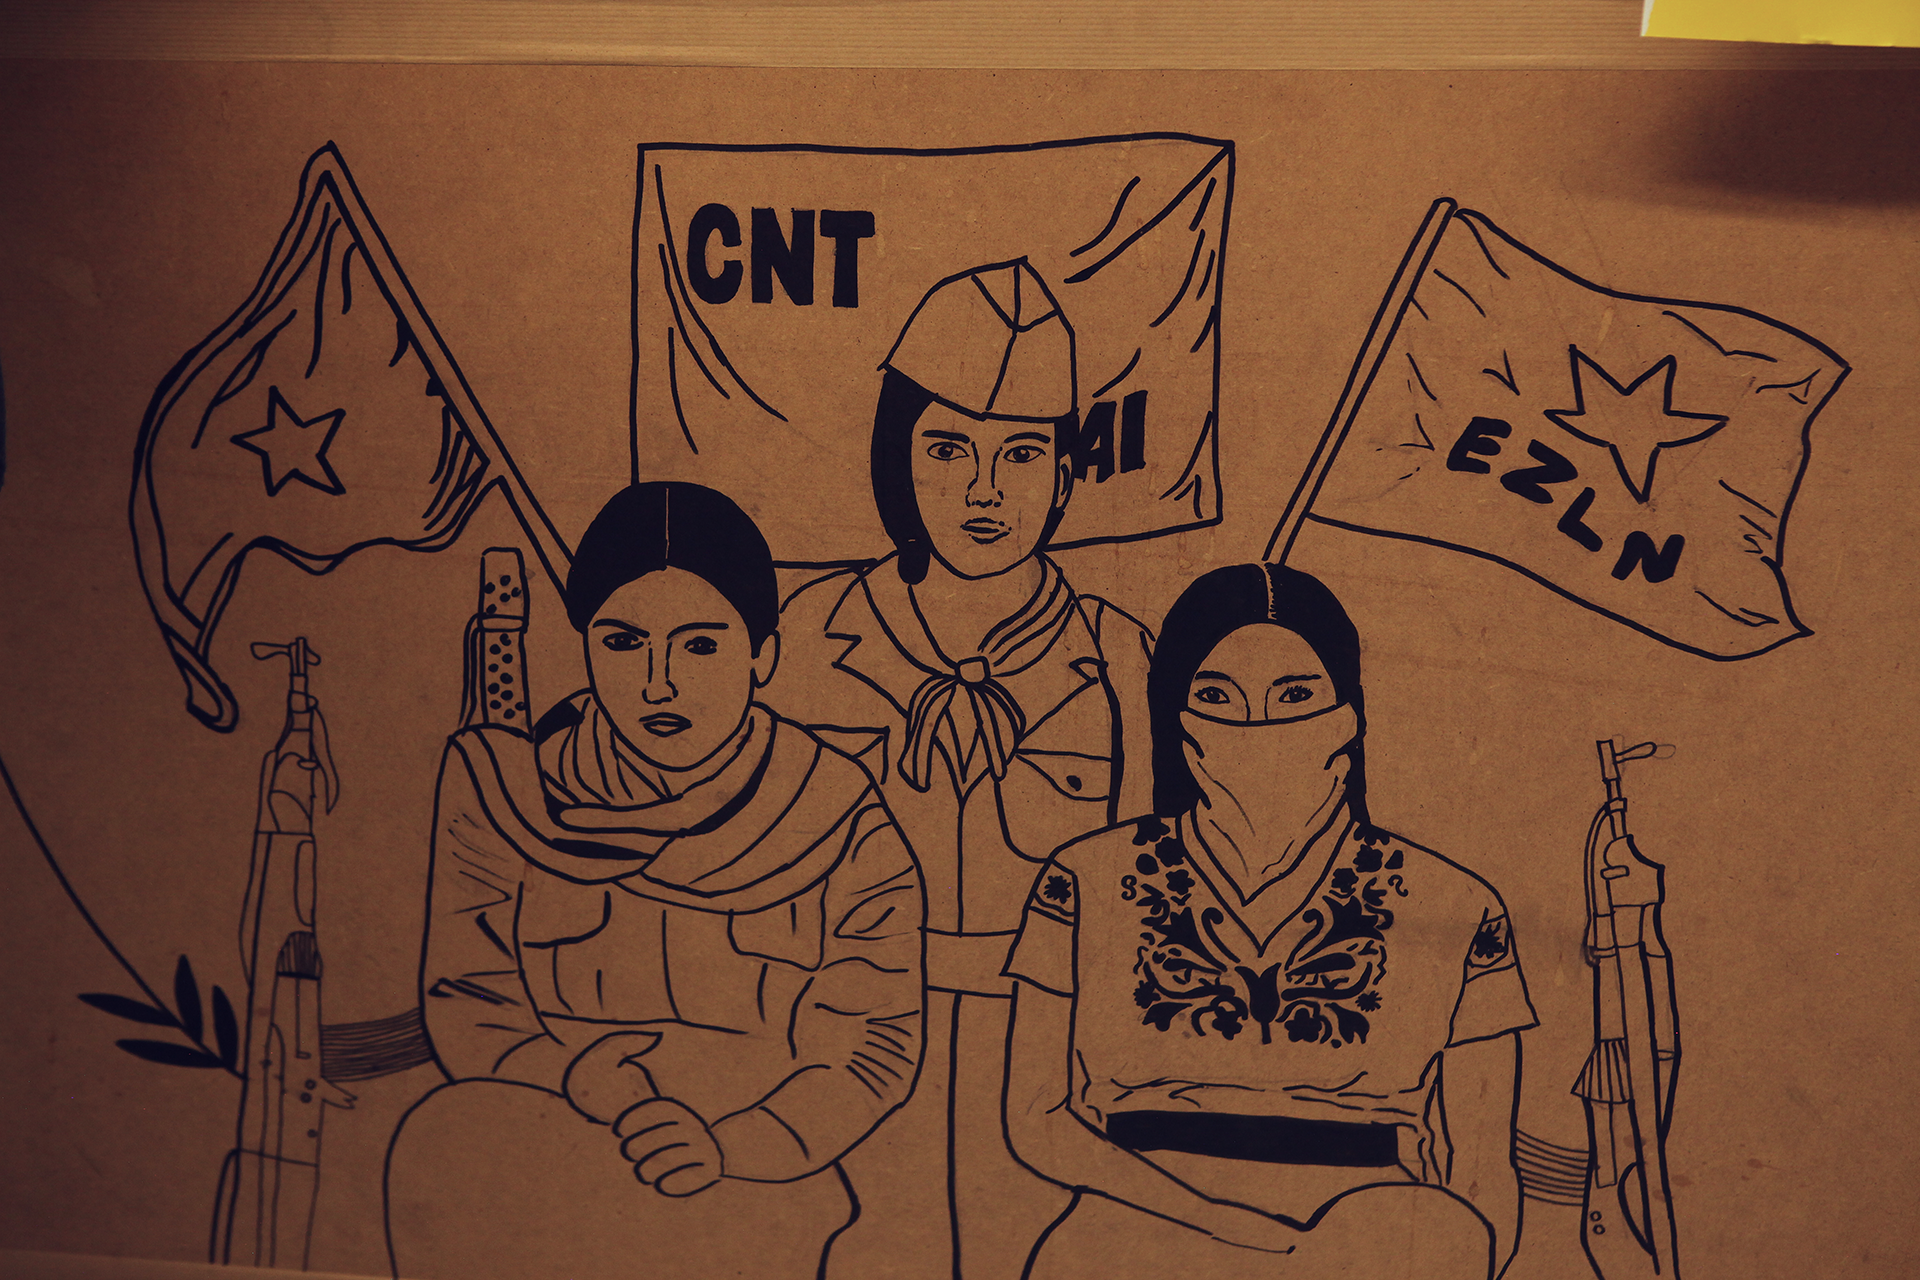 CNT
AI
EZLN